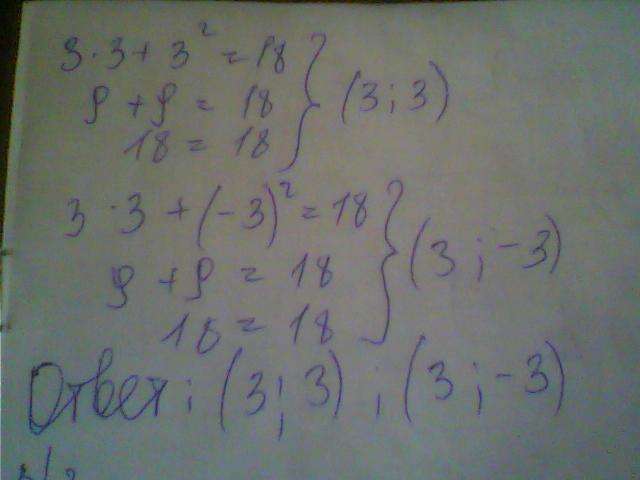 3·3+3²=18
9+9=18
18=18
} (3;3)
3·3+(-3)²=18
9+9=18
18=18
} (3;-3)
Ответ: (3;3); (3;-3)